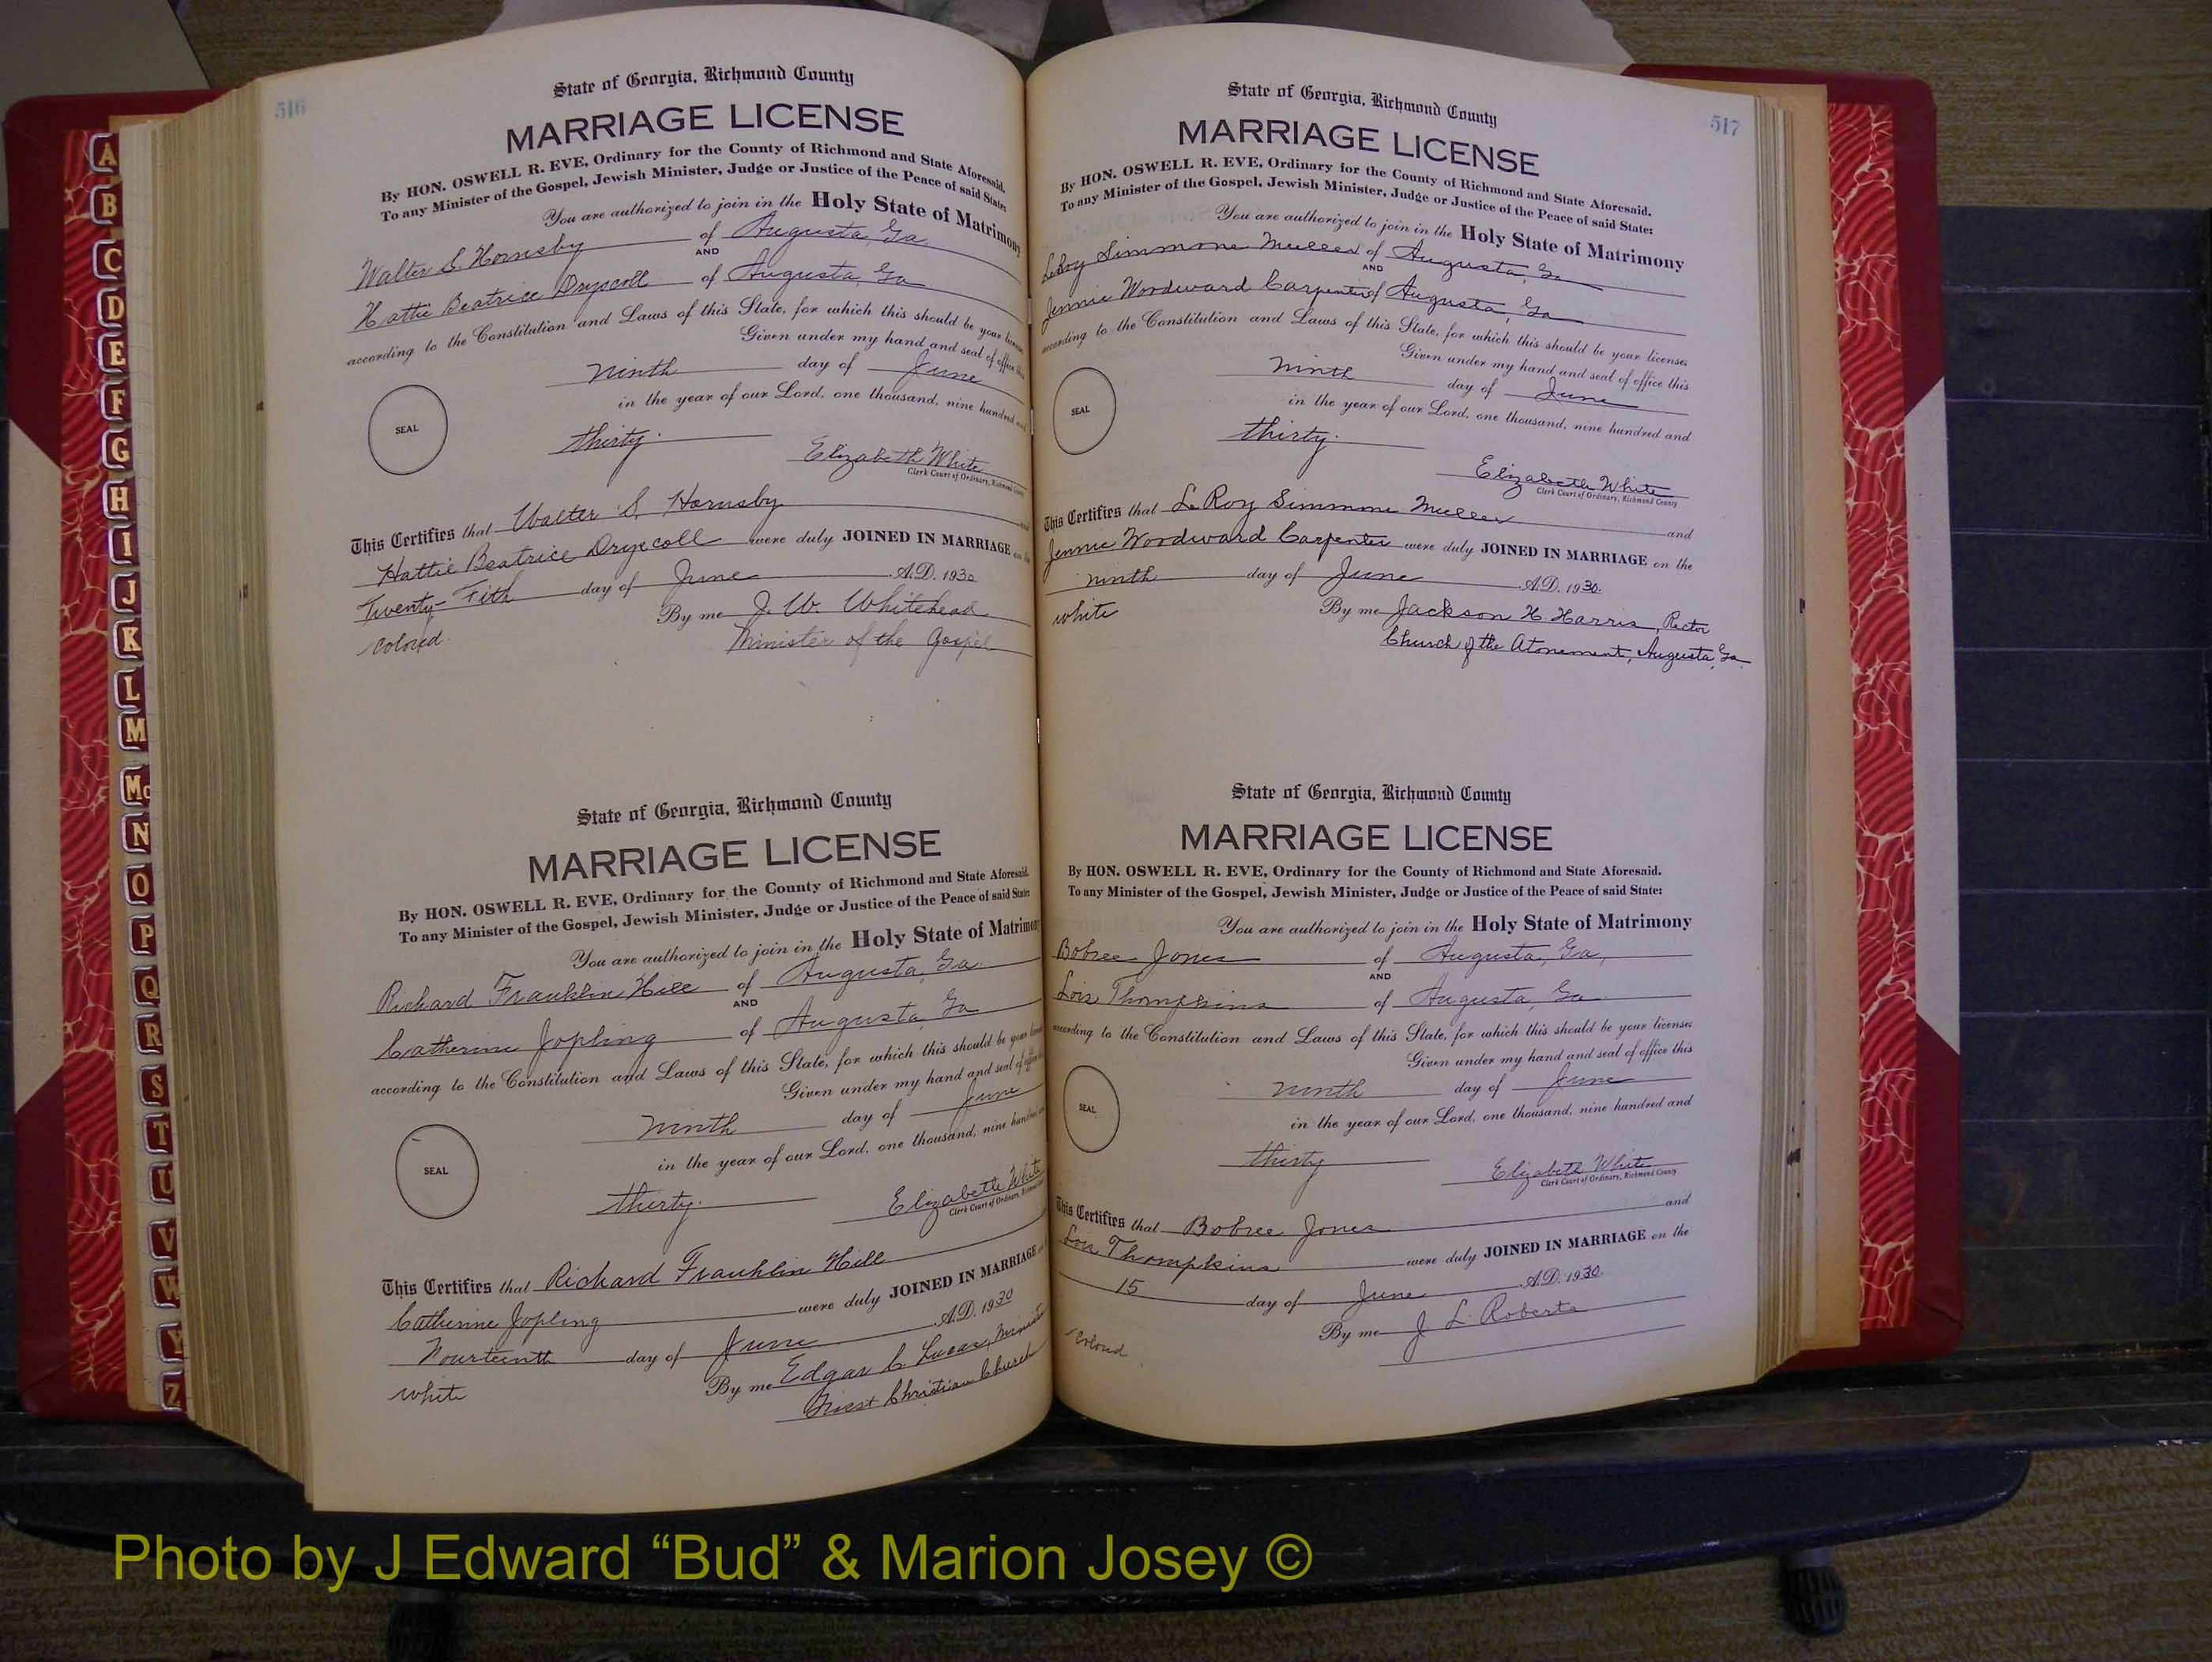 516
State of Georgia, Richmond County
MARRIAGE LICENSE
By HON. OSWELL R. EVE, Ordinary for the County of Richmond and State Aforesaid.
To any Minister of the Gospel, Jewish Minister, Judge or Justice of the Peace of said State:
You are authorized to join in the Holy State of Matrimony
Walter S. Hornsby of Augusta, Ga.
AND
Hattie Beatrice Dryscoll of Augusta, Ga
according to the Constitution and Laws of this State, for which this should be your license
Given under my hand and seal of office this
ninth day of June
in the year of our Lord, one thousand, nine hundred and
SEAL
thirty.
Elizabeth White
Clerk Court of Ordinary, Richmond County
This Certifies that Walter S. Hornsby
Hattie Beatrice Dryscoll were duly JOINED IN MARRIAGE on the
Twenty-Fith day of June A.D. 1930
By me J. W. Whitehead
colored Minister of the Gospel
State of Georgia, Richmond County
MARRIAGE LICENSE
By HON. OSWELL R. EVE, Ordinary for the County of Richmond and State Aforesaid.
To any Minister of the Gospel, Jewish Minister, Judge or Justice of the Peace of said State:
You are authorized to join in the Holy State of Matrimony
Richard Franklin Hill of Augusta, Ga.
AND
Catherine Jopling of Augusta, Ga
according to the Constitution and Laws of this State, for which this should be your license
Given under my hand and seal of office
ninth day of June
in the year of our Lord, one thousand, nine hundred and
SEAL
thirty.
Elizabeth White
Clerk Court of Ordinary, Richmond County
This Certifies that Richard Franklin Hill
Catherine Jopling were duly JOINED IN MARRIAGE
Fourteenth day of June A.D. 1930
By me Edgar C. Lucas, Minister
white First Christian Church
517
State of Georgia, Richmond County
MARRIAGE LICENSE
By HON. OSWELL R. EVE, Ordinary for the County of Richmond and State Aforesaid.
To any Minister of the Gospel, Jewish Minister, Judge or Justice of the Peace of said State:
You are authorized to join in the Holy State of Matrimony
LeRoy Simmons of Augusta, Ga
AND
Jennie Woodward Carpenter of Augusta, Ga
according to the Constitution and Laws of this State, for which this should be your license
Given under my hand and seal of office this
ninth day of June
in the year of our Lord, one thousand, nine hundred and
SEAL
thirty.
Elizabeth White
Clerk Court of Ordinary, Richmond County
This Certifies that LeRoy Simmons and
Jennie Woodward Carpenter were duly JOINED IN MARRIAGE on the
ninth day of June A.D. 1930.
white By me Jackson H. Harris, Rector
Church of the Atonement, Augusta, Ga.
State of Georgia, Richmond County
MARRIAGE LICENSE
By HON. OSWELL R. EVE, Ordinary for the County of Richmond and State Aforesaid.
To any Minister of the Gospel, Jewish Minister, Judge or Justice of the Peace of said State:
You are authorized to join in the Holy State of Matrimony
Bobree Jones of Augusta, Ga,
AND
Lois Thompkins of Augusta, Ga.
according to the Constitution and Laws of this State, for which this should be your license
Given under my hand and seal of office this
ninth day of June
in the year of our Lord, one thousand, nine hundred and
SEAL
thirty
Elizabeth White
Clerk Court of Ordinary, Richmond County
This Certifies that Bobree Jones and
Lois Thompkins were duly JOINED IN MARRIAGE on the
15 day of June A.D. 1930.
By me J. L. Roberts
Colored
A
B
C
D
E
F
G
H
I
J
K
L
M
Mc
N
O
P
Q
R
S
T
U
V
W
Y
Z
Photo by J Edward “Bud” & Marion Josey ©